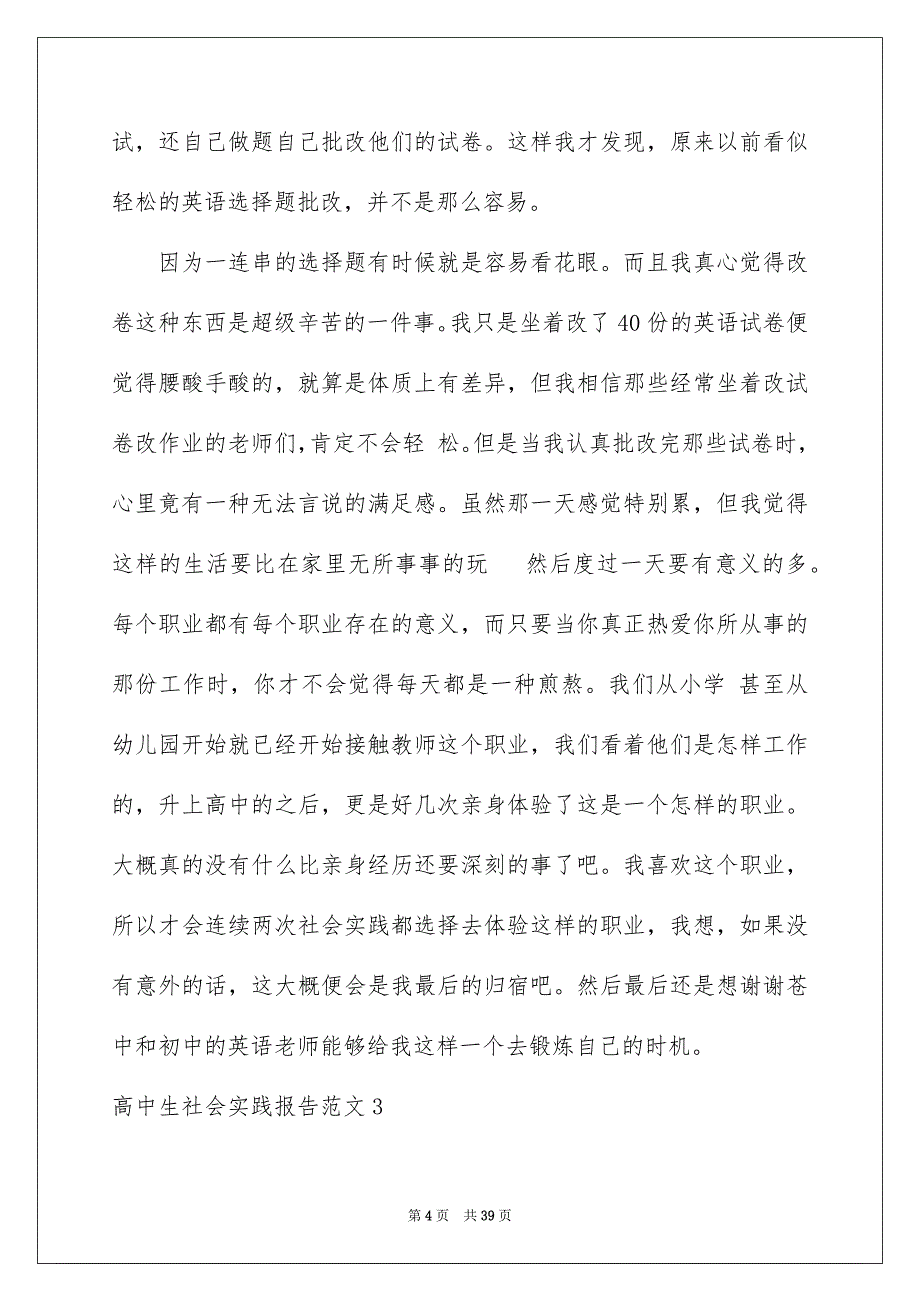 试，还自己做题自己批改他们的试卷。这样我才发现，原来以前看似
轻松的英语选择题批改，并不是那么容易。
因为一连串的选择题有时候就是容易看花眼。而且我真心觉得改
卷这种东西是超级辛苦的一件事。我只是坐着改了 40 份的英语试卷便
觉得腰酸手酸的，就算是体质上有差异，但我相信那些经常坐着改试
卷改作业的老师们，肯定不会轻 松。但是当我认真批改完那些试卷时，
心里竟有一种无法言说的满足感。虽然那一天感觉特别累，但我觉得
这样的生活要比在家里无所事事的玩 然后度过一天要有意义的多。
每个职业都有每个职业存在的意义，而只要当你真正热爱你所从事的
那份工作时，你才不会觉得每天都是一种煎熬。我们从小学 甚至从
幼儿园开始就已经开始接触教师这个职业，我们看着他们是怎样工作
的，升上高中的之后，更是好几次亲身体验了这是一个怎样的职业。
大概真的没有什么比亲身经历还要深刻的事了吧。我喜欢这个职业，
所以才会连续两次社会实践都选择去体验这样的职业，我想，如果没
有意外的话，这大概便会是我最后的归宿吧。然后最后还是想谢谢苍
中和初中的英语老师能够给我这样一个去锻炼自己的时机。
高中生社会实践报告范文 3
第 4 页 共 39 页